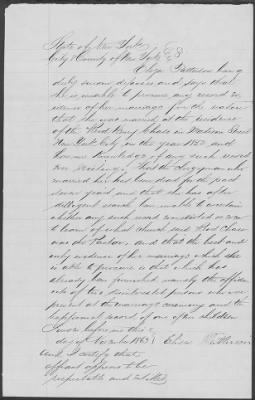 State of New York
City & County of New York } SS
Eliza Patterson being
duly sworn deposes and says that
she is unable to procure any record
evidence of her marriage for the reason
that she was married at the residence
of the Revd Benj Chase in Madison Street
New York City in the year 1850 and
knows of any such record
existing. That the Clergyman who
married her has been dead for the past
seven years and that she has after
dilligent search been unable to ascertain
whether any such record existed or
to learn of what church said Revd Chase
was the Pastor, and that the best and
only evidence of her marriage which she
is able to procure is that which has
already been furnished namely the affida
vits of two disinterested persons who were
present at the marriage ceremony and the
baptismal record of one of her children
Sworn before me this
day of November 1863 } Eliza Patterson
and I certify that
affiant appears to be
respectable and entitled